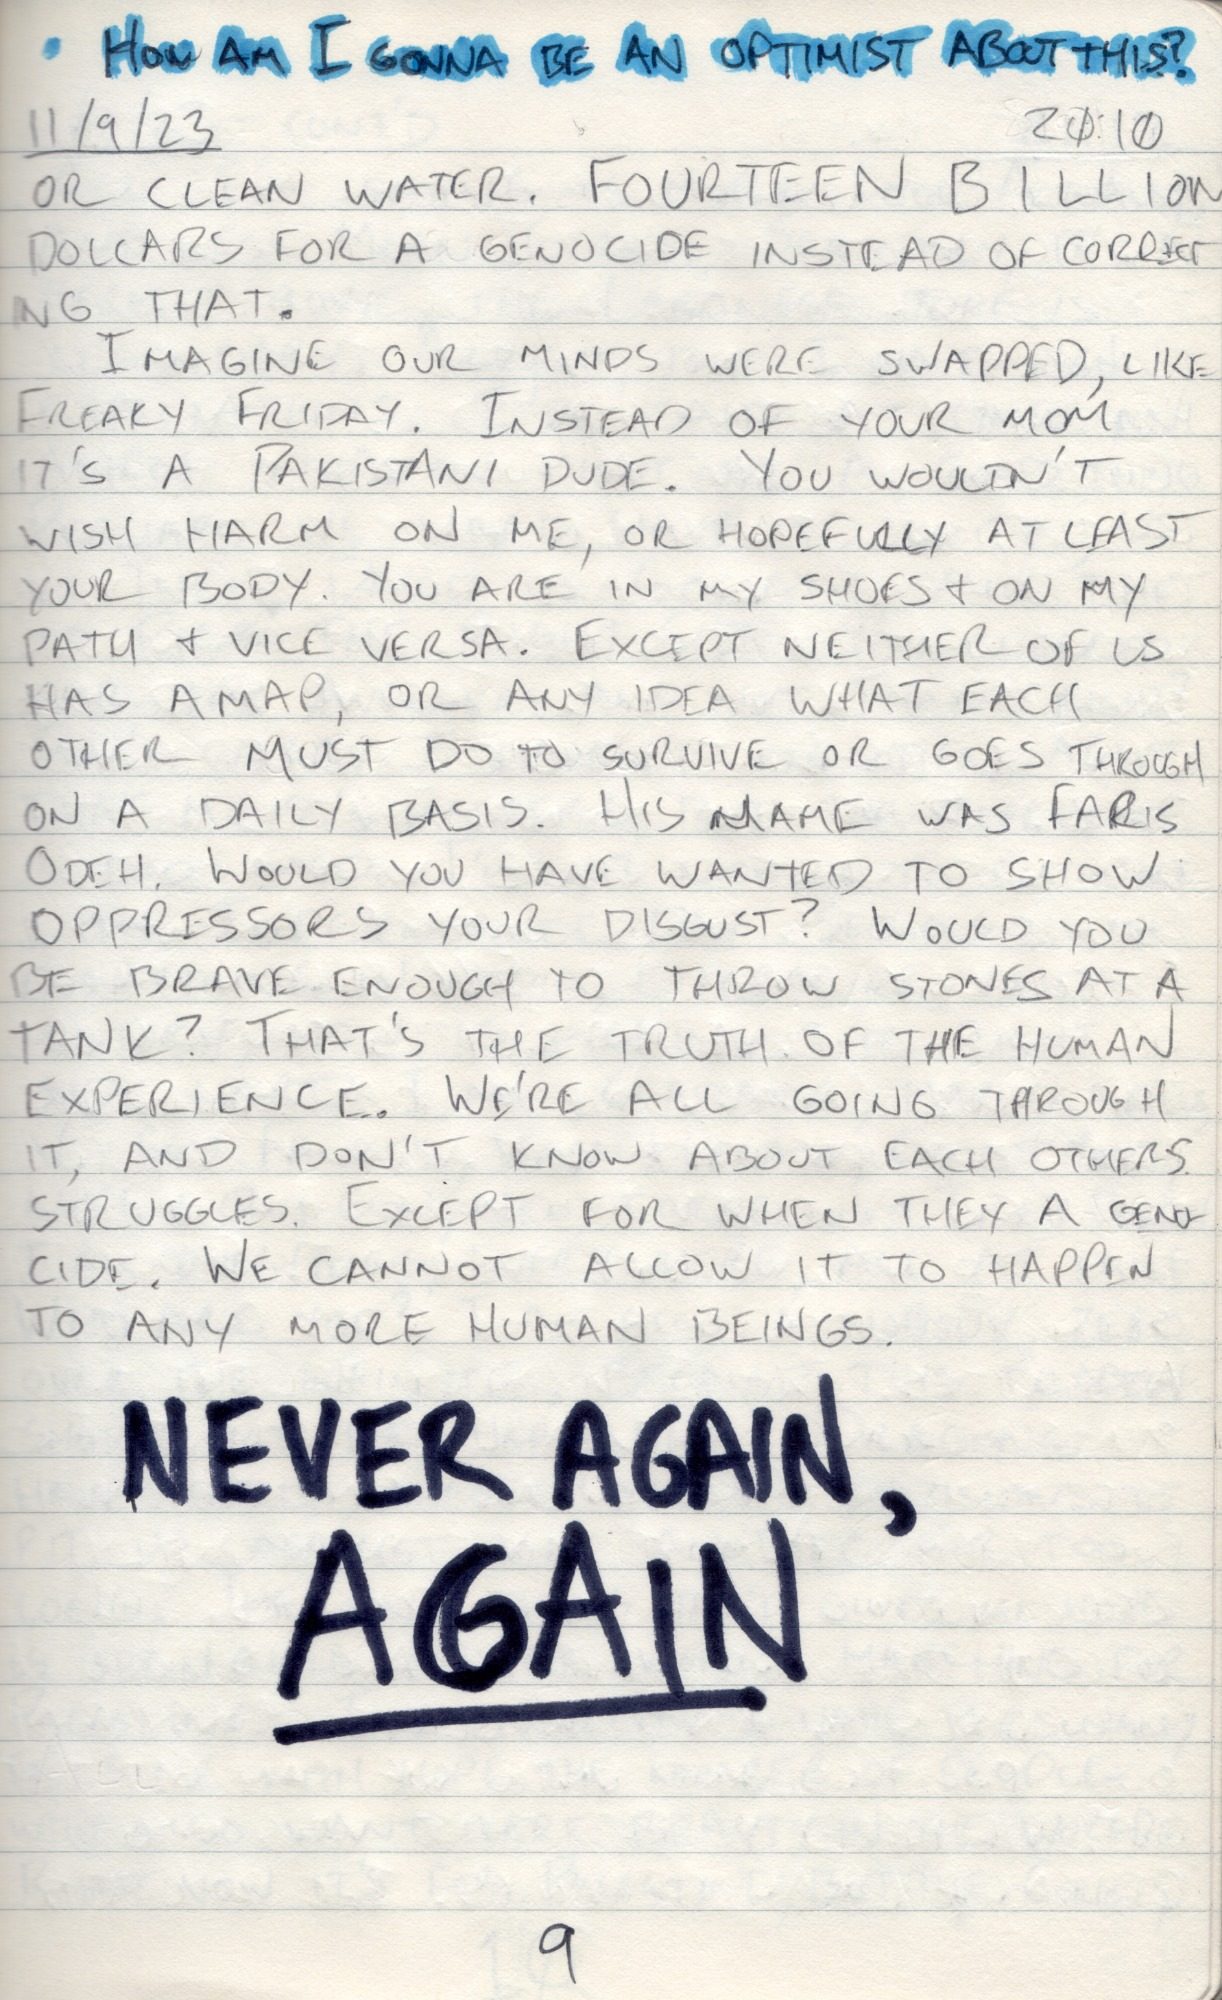 • HOW AM I GONNA BE AN OPTIMIST ABOUT THIS?
11/9/23 20:10
OR CLEAN WATER. FOURTEEN BILLION
DOLLARS FOR A GENOCIDE INSTEAD OF CORRECT
ING THAT.
IMAGINE OUR MINDS WERE SWAPPED, LIKE
FREAKY FRIDAY. INSTEAD OF YOUR MOM
IT'S A PAKISTANI DUDE. YOU WOULDN'T
WISH HARM ON ME, OR HOPEFULLY AT LEAST
YOUR BODY. YOU ARE IN MY SHOES + ON MY
PATH + VICE VERSA. EXCEPT NEITHER OF US
HAS A MAP, OR ANY IDEA WHAT EACH
OTHER MUST DO TO SURVIVE OR GOES THROUGH
ON A DAILY BASIS. HIS NAME WAS FARIS
ODEH. WOULD YOU HAVE WANTED TO SHOW
OPPRESSORS YOUR DISGUST? WOULD YOU
BE BRAVE ENOUGH TO THROW STONES AT A
TANK? THAT'S THE TRUTH OF THE HUMAN
EXPERIENCE. WE'RE ALL GOING THROUGH
IT, AND DON'T KNOW ABOUT EACH OTHERS
STRUGGLES. EXCEPT FOR WHEN THEY A GENO-
CIDE. WE CANNOT ALLOW IT TO HAPPEN
TO ANY MORE HUMAN BEINGS.
NEVER AGAIN,
AGAIN
9